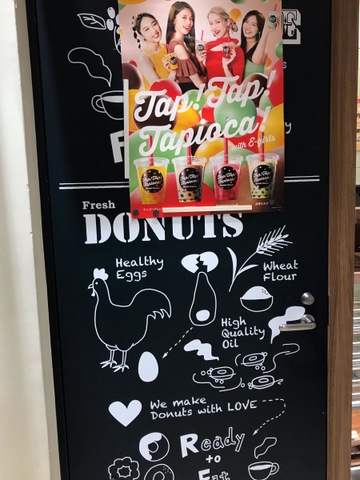 Tap! Tap!
Tapioca!
with E-girls
Fresh
DONUTS
Healthy
Eggs
Wheat
Flour
High
Quality
Oil
We make
Donuts with LOVE
Ready
to
Eat